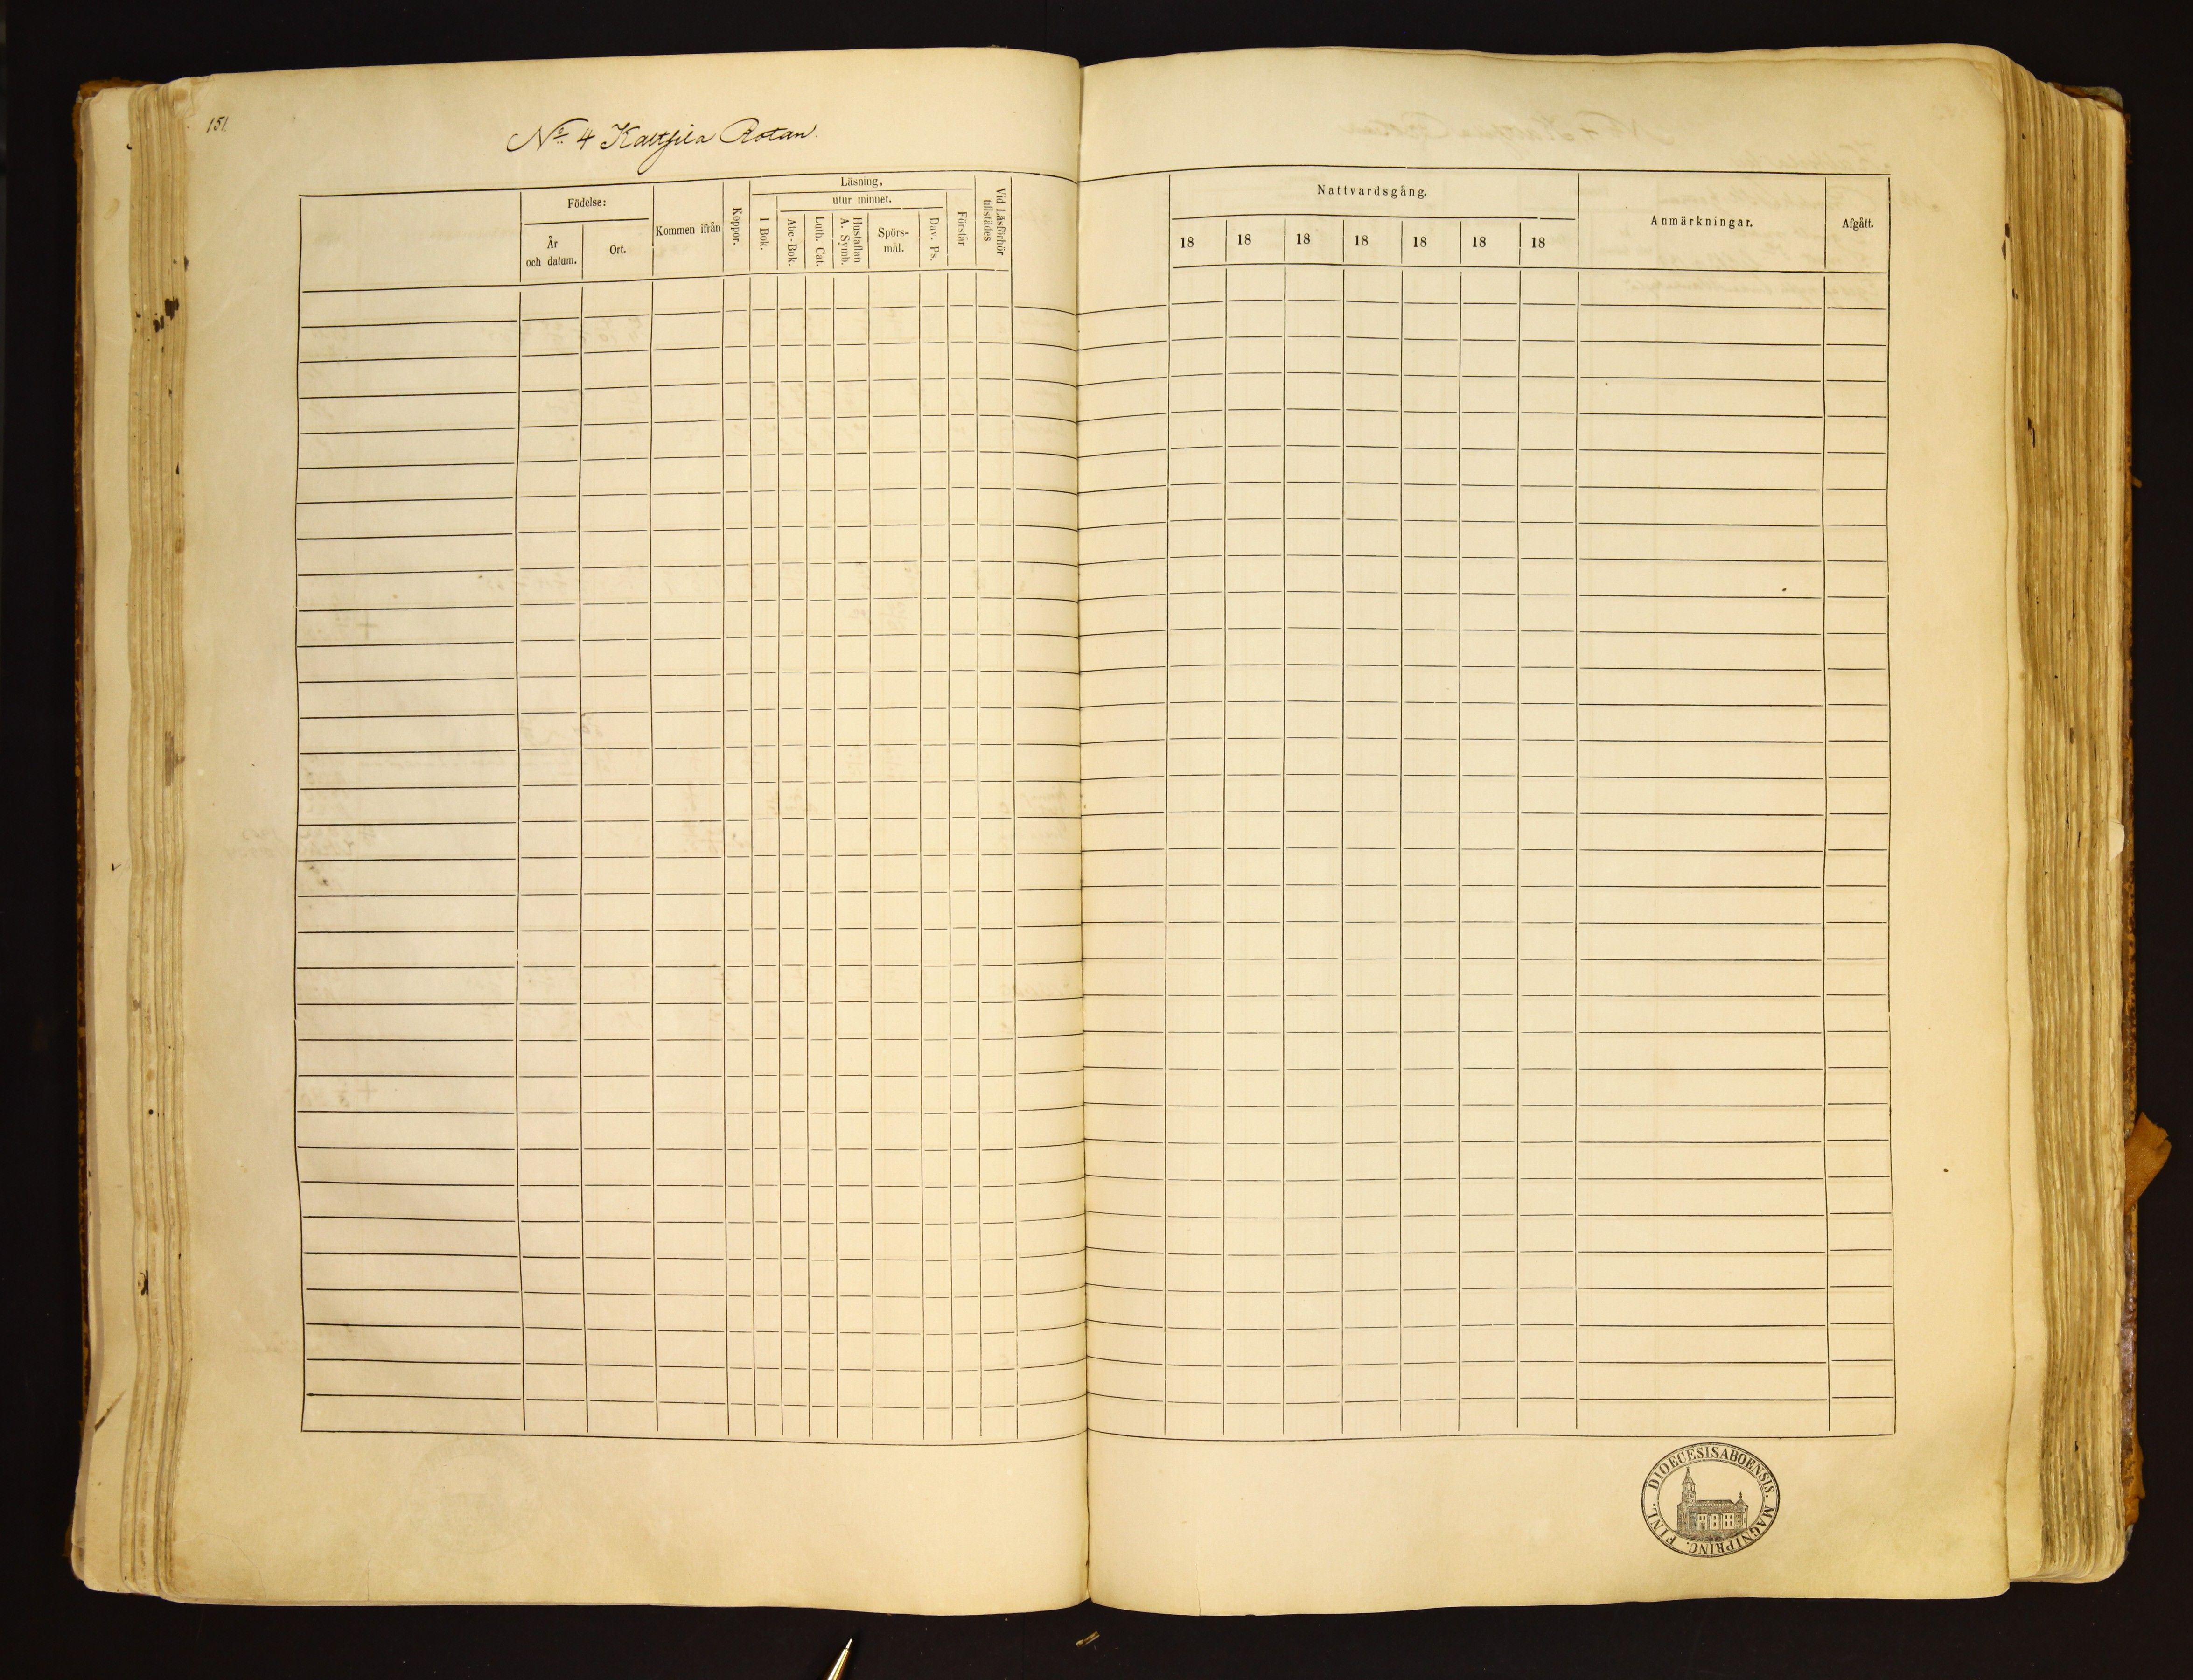 151.
No 4 Kaltsila Rotan.
Födelse:
År
och datum.
Ort.
Kommen ifrån
Koppor.
Läsning,
I Bok.
utur minnet.
Abc-Bok.
Luth. Cat.
Hustaflan
A. Symb.
Spörs-
mål.
Dav. Ps.
Förstår
Vid Läsförhör
tillstädes
Nattvardsgång.
18 18 18 18 18 18 18
Anmärkningar.
Afgått.
DIOECESIS ABOENSIS. MAGNI PRINC. FINL.